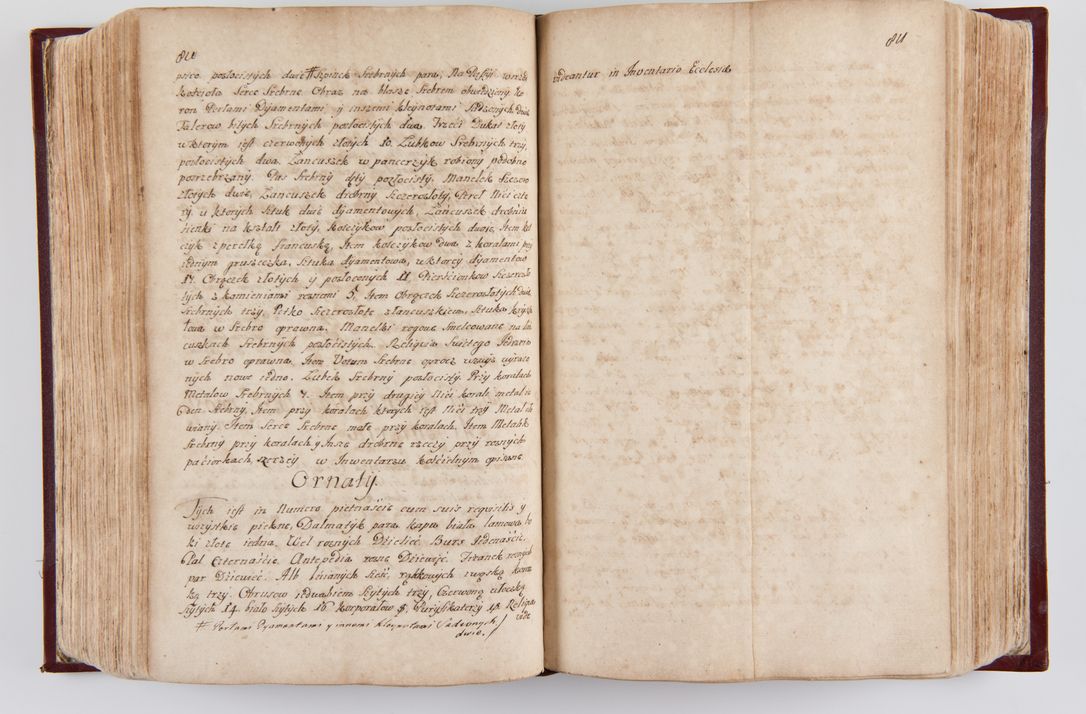 80
pięro posłocistych dwie # Szpinek Srebrnych para,
kościoła Serce Srebrne Obraz na blasze Srebrem obwiedziony ko
ron Perłami Dyamentami y inszemi kleynotami Sadzonych dwie
Talerow bitych Srebrnych posłocistych dwa. Trzeci Dukat złoty
w ktorym jest czerwonych złotych 10. Lubkow Srebrnych trzy,
posłocistych dwa. Lancuszek w pancerzyk robiony podobno
posrzebrzany. Pas Srebrny cały pozłocisty. Manelek Szczero
złotych dwie, Lancuszek drobny Szczerozłoty, Pereł Nici czte
ry, u ktorych Sztuk dwie dyamentowych, Lancuszek drobniu
sienki na kształt złoty, kolczykow posłocistych dwoie, Item kol
czyk z perełką francuską, Item kolczykow dwa z koralami przy
iednym gruszeczka, Sztuka dyamentowa, w ktorey dyamentow
17. Obrączek złotych y posłoconych 11. Pierscionkow Szczerozło
tych z kamieniami roznemi 5, Item Obrączek Szczerozłotych dwie
Srebrnych trzy, Petko Szczerozłote z łancuszkiem, Sztuka kryszta
łowa w Srebro oprawna. Manelki rogowe Smelcowane na łan
cuszkach Srebrnych posłocistych. Religia Swiętego
w Srebro oprawna, Item Votum Srebrne oprocz wzwyż wyrażo
nych nowe iedno. Lubek Srebrny posłocisty. Przy koralach
Metalow Srebrnych 7. Item przy drugiey Nici korali metal ie
den Srebrny, Item przy koralach ktorych jest Nici trzy Metal
Item Serce Srebrne małe przy koralach. Item Metalik
Srebrny przy koralach y Insze drobne rzeczy przy roznych
paciorkach, rzeczey w Inwentarzu kościelnym opisane
Ornaty.
Tych jest in Numero pietnaście cum suis requisitis y
wszystkie piekne, Dalmatyk para kapa biała lamowa bo
ki złote iedna. Wel roznych Dzielięć. Burs Iedenaście,
Pal czternaście. Antepedia rosne Dziewięć. Firanek roznych
par Dziewięć. Alb lnianych Sześć, rąbkowych z wąską koron
ką trzy. Obrusow iedwabiem Szytych trzy, czerwoną włoczką
Szytych 14. biało Szytych 16. korporałow 8. Puryfikaterzy 48. Reliqua
vide
# Perłami Dyamentami y innemi kleynotami Sadzonych
dwie. /
811
videantur in Inventario Ecclesiæ